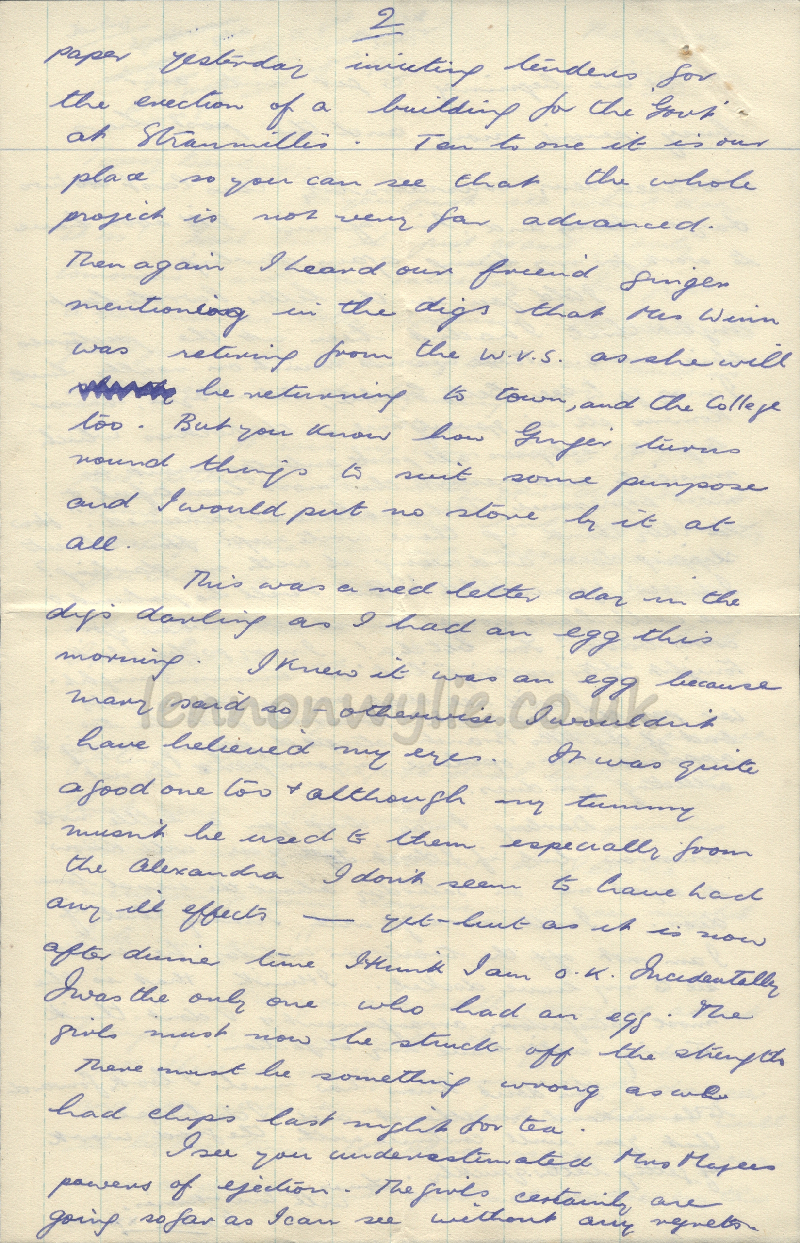 2
paper yesterday inviting tenders for
the erection of a building for the Govt.
at Stranmillis. Ten to one it is our
place so you can see that the whole
project is not very far advanced.
Then again I heard our friend Ginger
mentioning in the digs that Mrs Winn
was retiring from the W.V.S. as she will
be returning to town, and the College
too. But you know how Ginger turns
round things to suit some purpose
and I would put no store by it at
all.
This was a red letter day in the
digs darling as I had an egg this
morning. I knew it was an egg because
Mary said so - otherwise I wouldn't
have believed my eyes. It was quite
a good one too + although my tummy
musn't be used to them especially from
the Alexandra I don't seem to have had
any ill effects — yet - but as it is now
after dinner time I think I am O.K. Incidentally
I was the only one who had an egg. The
girls must now be struck off the strength
There must be something wrong as we
had chips last night for tea.
I see you underestimated Mrs
powers of ejection. The girls certainly are
going so far as I can see without any regrets.
lennonwylie.co.uk